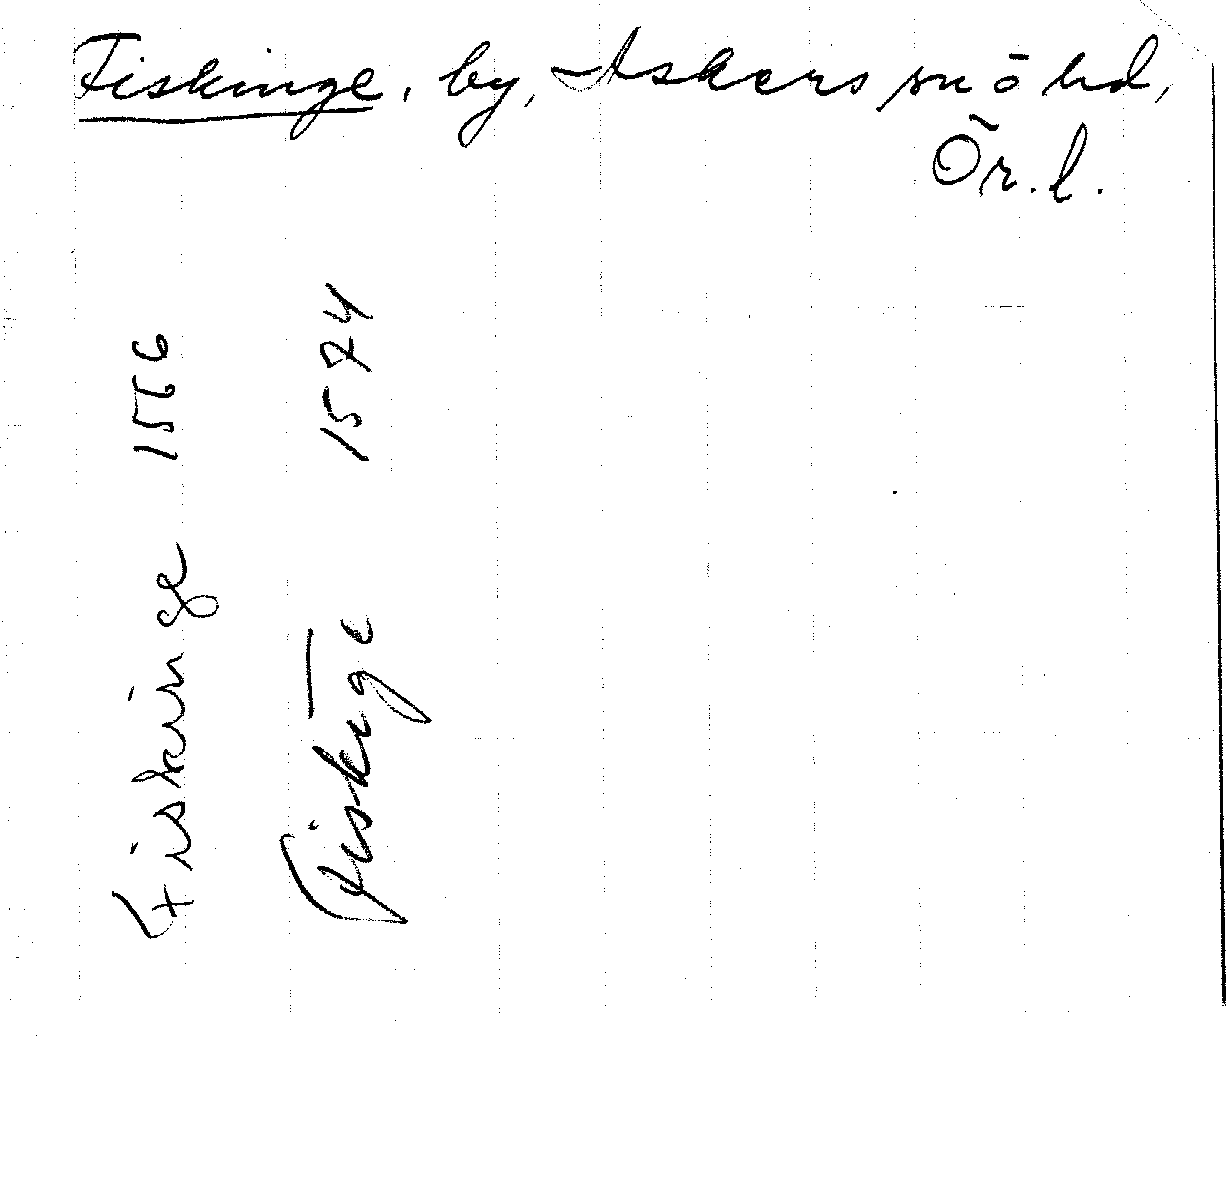 Fiskinge, by, Askers sn ō hd,
Ör. l.
Fiskinge 1566
Fiski̅ge 1574